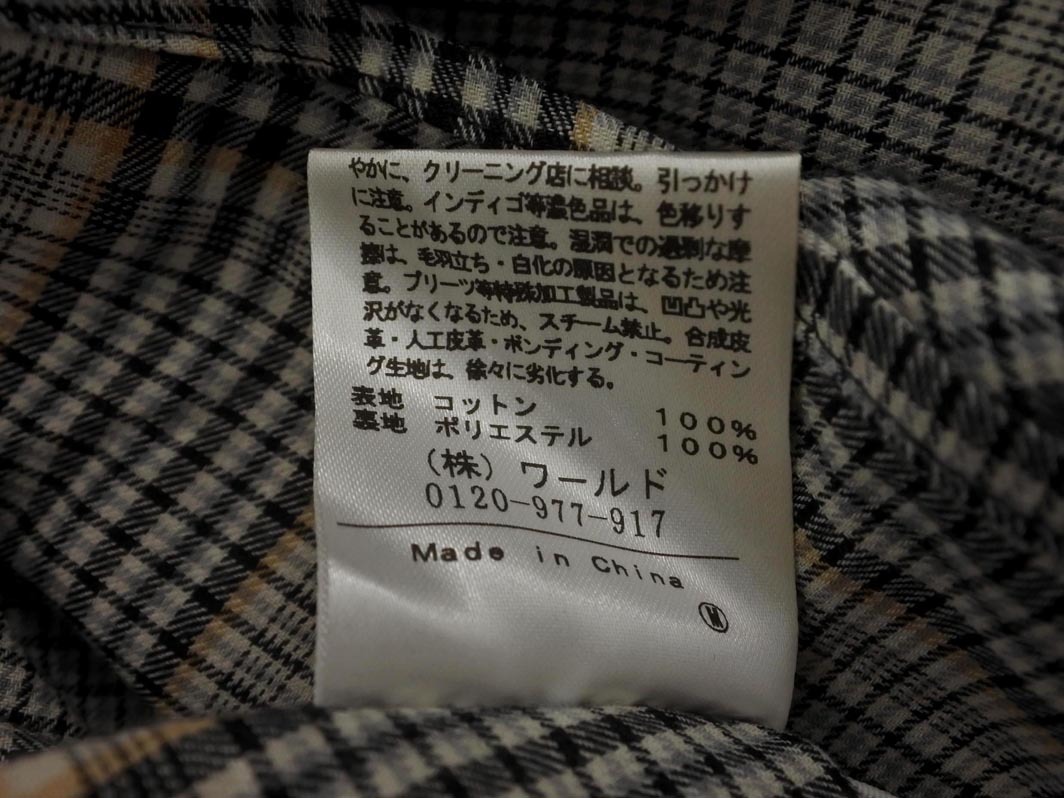 やかに、クリーニング店に相談。引っかけ
に注意。インディゴ等濃色品は、色移りす
ることがあるので注意。湿潤での過剰な摩
擦は、毛羽立ち・白化の原因となるため注
意。プリーツ等特殊加工製品は、凹凸や光
沢がなくなるため、スチーム禁止。合成皮
革・人工皮革・ボンディング・コーティン
グ生地は、徐々に劣化する。
表地 コットン 100%
裏地 ポリエステル 100%
(株) ワールド
0120-977-917
Made in China
M